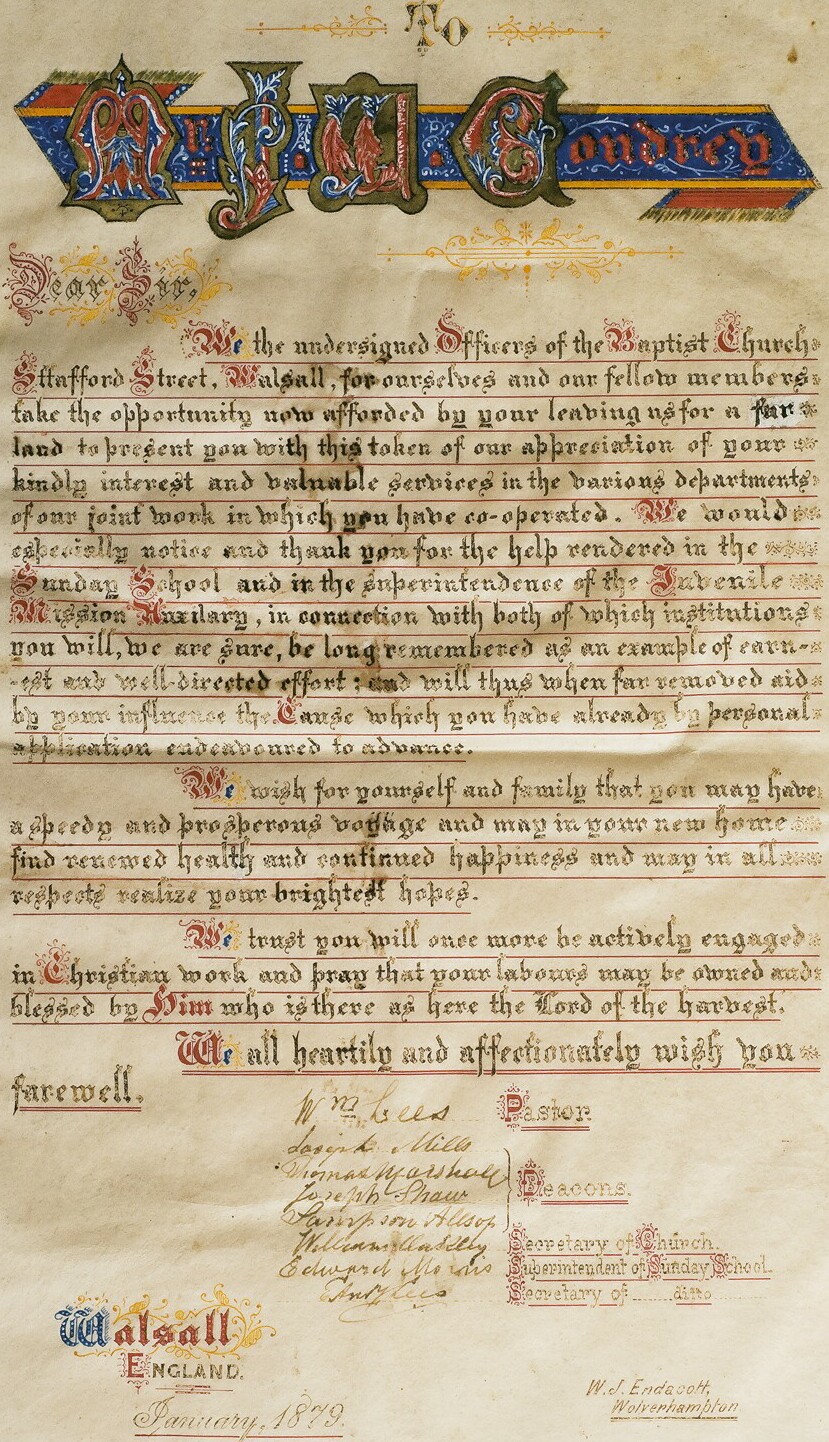 To
Mr. J. W. Condrey
Dear Sir,
We the undersigned Officers of the Baptist Church
Stafford Street, Walsall, for ourselves and our fellow members
take the opportunity now afforded by your leaving us for a far
land to present you with this token of our appreciation of your
kindly interest and valuable services in the various departments
of our joint work in which you have co-operated. We would
especially notice and thank you for the help rendered in the
Sunday School and in the superintendence of the Juvenile
Mission Auxilary, in connection with both of which institutions
you will, we are sure, be long remembered as an example of earn-
-est and well-directed effort; and will thus when far removed aid
by your influence the Cause which you have already by personal
application endeavoured to advance.
We wish for yourself and family that you may have
a speedy and prosperous voyage and may in your new home
find renewed health and continued happiness and may in all
respects realize your brightest hopes.
We trust you will once more be actively engaged
in Christian work and pray that your labours may be owned and
blessed by Him who is there as here the Lord of the harvest.
We all heartily and affectionately wish you
farewell.
Wm Lees Pastor
Joseph Mills
Thomas Marshall
Joseph Shaw Deacons.
Sampson Allsop
William Secretary of Church.
Edward Morris Superintendent of Sunday School.
Lees Secretary of ditto
Walsall
England.
January, 1879.
W. J. Endacott,
Wolverhampton